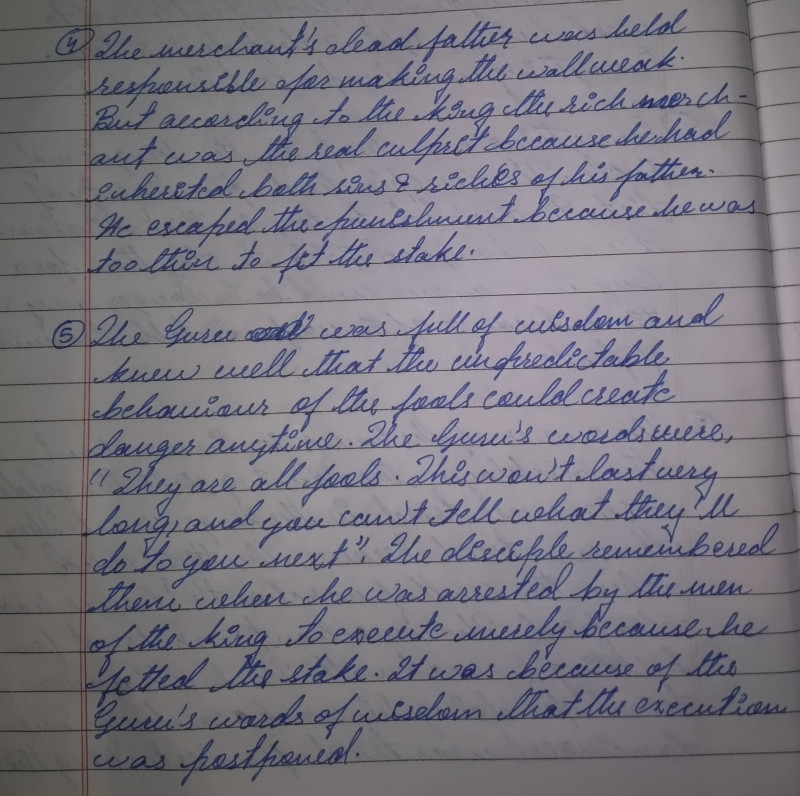 ④ The merchant's dead father was held
responsible for making the wall weak.
But according to the king the rich merch-
ant was the real culprit because he had
inherited both sins & riches of his father.
He escaped the punishment because he was
too thin to fit the stake.
⑤ The Guru was full of wisdom and
knew well that the unpredictable
behaviour of the fools could create
danger anytime. The Guru's words were,
"They are all fools. This won't last very
long, and you can't tell what they'll
do to you next". The disciple remembered
them when he was arrested by the men
of the king to execute merely because he
fitted the stake. It was because of the
Guru's words of wisdom that the execution
was postponed.